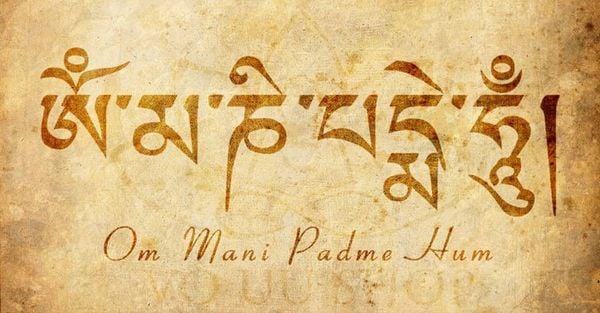 ཨོཾ་མ་ཎི་པདྨེ་ཧཱུྃ།
Om Mani Padme Hum